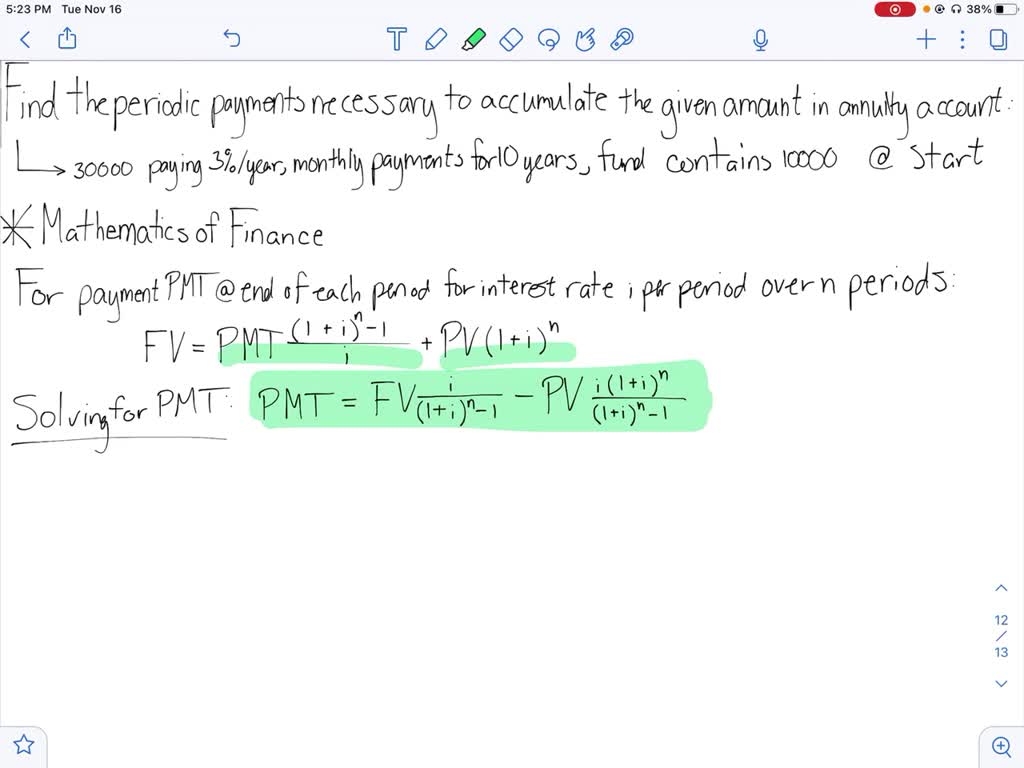 5:23 PM Tue Nov 16 38%
Find the periodic payments necessary to accumulate the given amount in annuity account:
↳ 30000 paying 3%/year, monthly payments for 10 years, fund contains 10000 @ start
* Mathematics of Finance
For payment PMT @ end of each period for interest rate i per period over n periods:
FV = PMT ((1+i)^n - 1)/i + PV(1+i)^n
Solving for PMT: PMT = FV i/((1+i)^n - 1) - PV i(1+i)^n/((1+i)^n - 1)
12
/
13